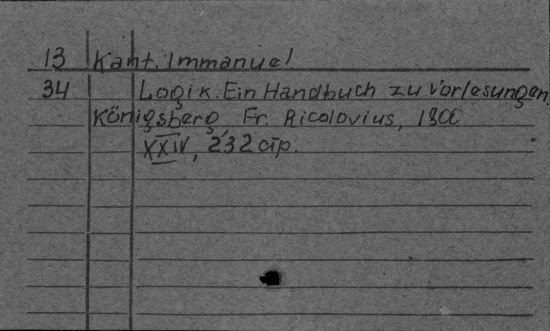 13 Kant, Immanuel
34 Logik. Ein Handbuch zu Vorlesungen,
Königsberg Fr. Nicolovius, 1800
XXIV, 232 стр.